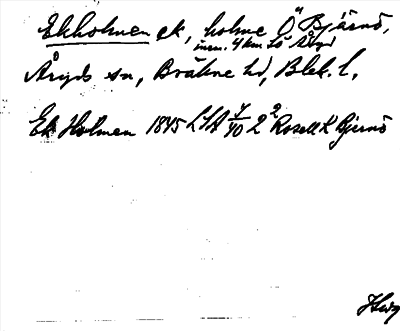 Ekholmen ek, holme Ö Bjärnö,
inv. 4 km SÖ Åryd
Åryds sn, Bräkne hd, Blek. l.
Ek Holmen 1845 LSA 7/40 2² Rosell K Bjernö